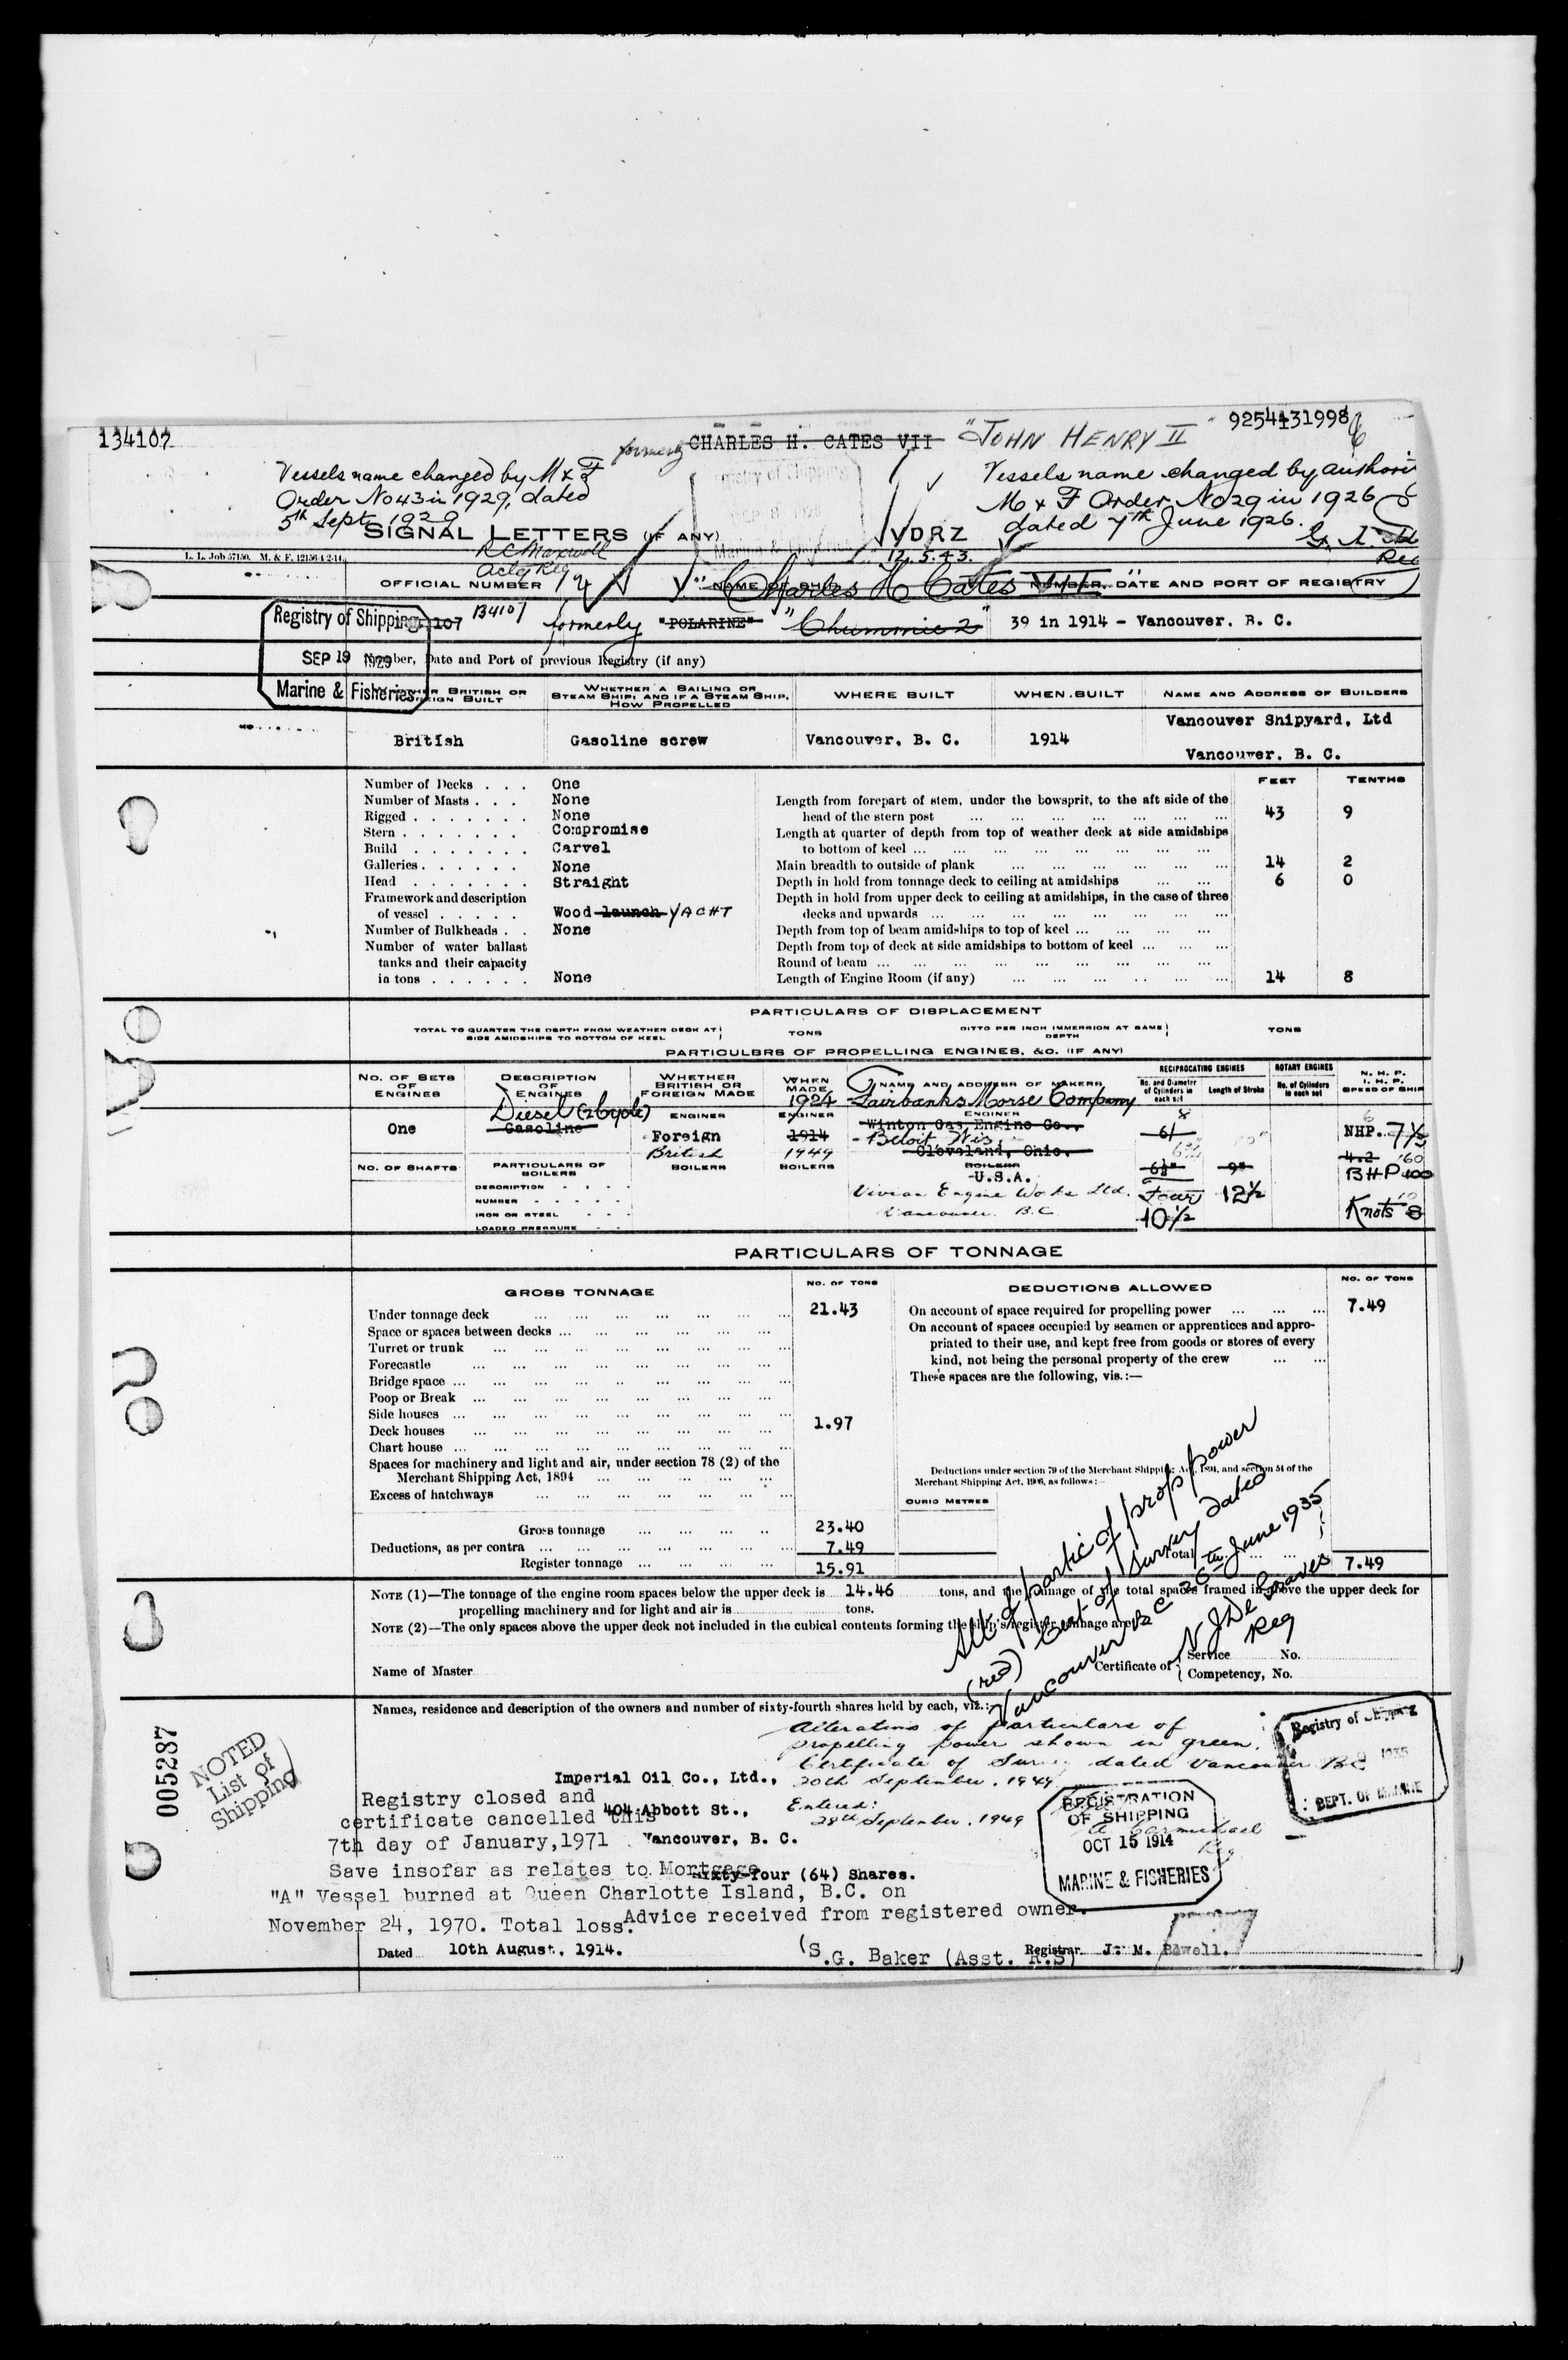 134107
formerly CHARLES H. CATES VII "JOHN HENRY II"
Vessels name changed by M & F
Order No 43 in 1929, dated
5th Sept. 1929
R C Maxwell
Actg Reg
Vessels name changed by
M & F Order, No 29 in 1926
dated 7th June 1926.
Reg
SIGNAL LETTERS (IF ANY) VDRZ
12.5.43.
L. L. Job 57150. M. & F. 12156-1 2-14.
OFFICIAL NUMBER NAME OF SHIP NUMBER, DATE AND PORT OF REGISTRY
"Charles H Cates VII"
134107 formerly "POLARINE" "Chummie 2" 39 in 1914 - Vancouver, B. C.
Registry of Shipping
SEP 19 1929
Marine & Fisheries
Number, Date and Port of previous Registry (if any)
WHETHER BRITISH OR FOREIGN BUILT
WHETHER A SAILING OR STEAM SHIP; AND IF A STEAM SHIP, HOW PROPELLED
WHERE BUILT WHEN BUILT NAME AND ADDRESS OF BUILDERS
British Gasoline screw Vancouver, B. C. 1914 Vancouver Shipyard, Ltd
Vancouver, B. C.
FEET TENTHS
Number of Decks One
Number of Masts None
Rigged None
Stern Compromise
Build Carvel
Galleries None
Head Straight
Framework and description
of vessel Wood launch YACHT
Number of Bulkheads None
Number of water ballast
tanks and their capacity
in tons None
Length from forepart of stem, under the bowsprit, to the aft side of the
head of the stern post 43 9
Length at quarter of depth from top of weather deck at side amidships
to bottom of keel
Main breadth to outside of plank 14 2
Depth in hold from tonnage deck to ceiling at amidships 6 0
Depth in hold from upper deck to ceiling at amidships, in the case of three
decks and upwards
Depth from top of beam amidships to top of keel
Depth from top of deck at side amidships to bottom of keel
Round of beam
Length of Engine Room (if any) 14 8
PARTICULARS OF DISPLACEMENT
TOTAL TO QUARTER THE DEPTH FROM WEATHER DECK AT SIDE AMIDSHIPS TO BOTTOM OF KEEL TONS
DITTO PER INCH IMMERSION AT SAME DEPTH TONS
PARTICULBRS OF PROPELLING ENGINES, &O. (IF ANY)
NO. OF SETS OF ENGINES
DESCRIPTION OF ENGINES
WHETHER BRITISH OR FOREIGN MADE
WHEN MADE
NAME AND ADDRESS OF MAKERS
RECIPROCATING ENGINES
No. and Diameter of Cylinders in each set
Length of Stroke
ROTARY ENGINES
No. of Cylinders in each set
N. H. P.
I. H. P.
SPEED OF SHIP
Diesel (2 cycle) 1924 Fairbanks Morse Company
ENGINES ENGINES ENGINES
One Gasoline Foreign 1914 Winton Gas Engine Co.,
Beloit, Wis,
British 1949 Cleveland, Ohio.
NHP. 7 1/2
4.2 160
NO. OF SHAFTS PARTICULARS OF BOILERS BOILERS BOILERS BOILERS
U.S.A. 6½" 9" BHP 100
DESCRIPTION
NUMBER
IRON OR STEEL
LOADED PRESSURE
Vivian Engine Works Ltd. Four 12½
Vancouver B.C. 10½ Knots 8
PARTICULARS OF TONNAGE
GROSS TONNAGE NO. OF TONS
DEDUCTIONS ALLOWED NO. OF TONS
Under tonnage deck 21.43
Space or spaces between decks
Turret or trunk
Forecastle
Bridge space
Poop or Break
Side houses
Deck houses 1.97
Chart house
Spaces for machinery and light and air, under section 78 (2) of the
Merchant Shipping Act, 1894
Excess of hatchways
Gross tonnage 23.40
Deductions, as per contra 7.49
Register tonnage 15.91
On account of space required for propelling power 7.49
On account of spaces occupied by seamen or apprentices and appro-
priated to their use, and kept free from goods or stores of every
kind, not being the personal property of the crew
These spaces are the following, vis.:—
Deductions under section 79 of the Merchant Shipping Act, 1894, and section 54 of the
Merchant Shipping Act, 1906, as follows:—
CUBIC METRES
Total 7.49
Alt. of partic of prop power
(red) Cert of Survey dated
Vancouver B C 26th June 1935
Reg
NOTE (1)—The tonnage of the engine room spaces below the upper deck is 14.46 tons, and the tonnage of the total spaces framed in above the upper deck for
propelling machinery and for light and air is tons.
NOTE (2)—The only spaces above the upper deck not included in the cubical contents forming the ship's register tonnage are:
Name of Master
Certificate of Service No.
Competency, No.
Names, residence and description of the owners and number of sixty-fourth shares held by each, viz.:
Alteration of particulars of
propelling power shown in green.
Certificate of Survey dated Vancouver BC
20th September, 1949
Entered:
28th September, 1949
Imperial Oil Co., Ltd.,
404 Abbott St.,
Vancouver, B. C.
Sixty-four (64) Shares.
Registry closed and
certificate cancelled this
7th day of January, 1971
Save insofar as relates to Mortgage
"A" Vessel burned at Queen Charlotte Island, B.C. on
November 24, 1970. Total loss. Advice received from registered owner.
(S.G. Baker (Asst. R.S)
Dated 10th August, 1914.
Registrar
005287
NOTED
List of
Shipping
REGISTRATION
OF SHIPPING
OCT 15 1914
MARINE & FISHERIES
Registry of Shipping
1935
DEPT. OF MARINE